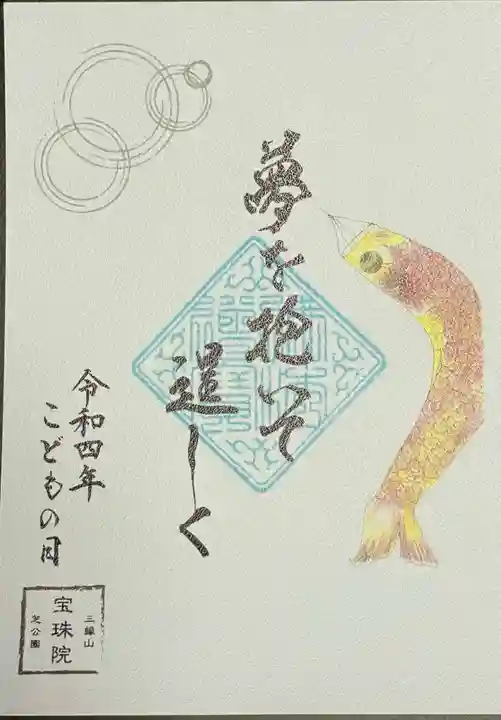 夢を抱いて
逞しく
令和四年
こどもの日
三縁山
宝珠院
芝公園